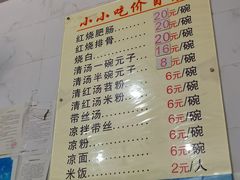 小小吃价目
红烧肥肠 20元/碗
红烧排骨 20元/碗
烧白 20元/碗
清汤一碗元子 16元/碗
清汤半碗元子 8元/碗
清红汤苕粉 6元/碗
清红汤米粉 6元/碗
带丝汤 6元/碗
凉拌带丝 6元/碗
凉粉 6元/碗
凉面 6元/碗
米饭 2元/人